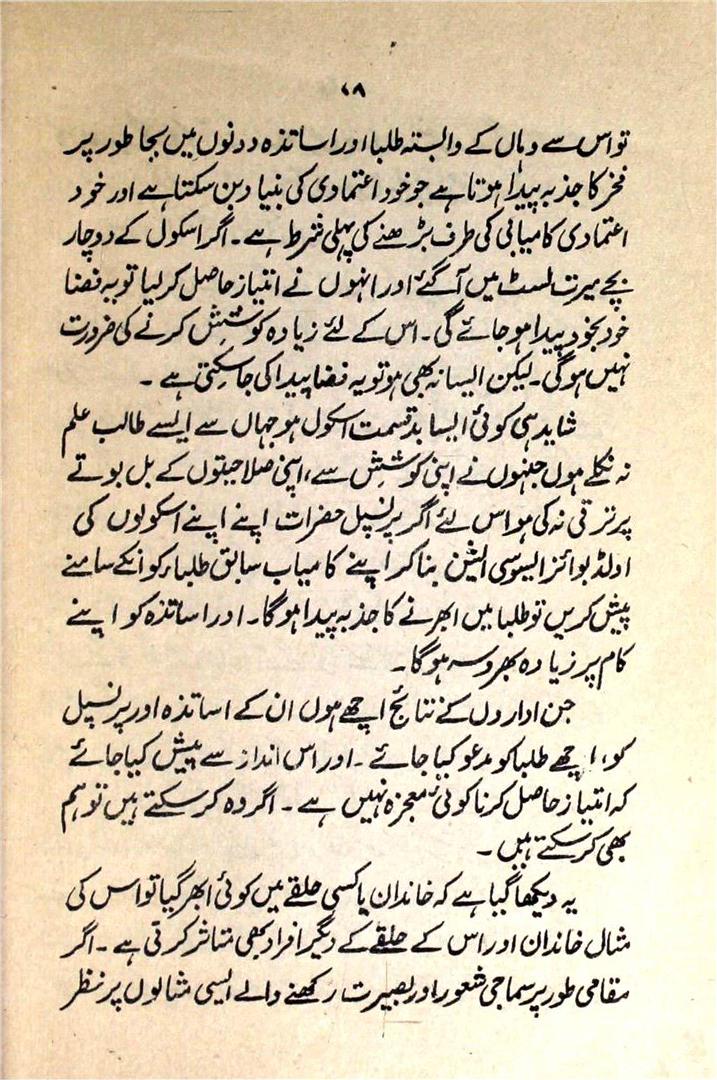 ۷۸
تو اس سے وہاں کے وابستہ طلبا اور اساتذہ دونوں میں بجا طور پر
فخر کا جذبہ پیدا ہوتا ہے جو خود اعتمادی کی بنیاد بن سکتا ہے اور خود
اعتمادی کامیابی کی طرف بڑھنے کی پہلی شرط ہے۔ اگر اسکول کے دو چار
بچے میرٹ لسٹ میں آگئے اور انہوں نے امتیاز حاصل کر لیا تو یہ فضا
خود بخود پیدا ہو جائے گی۔ اس کے لئے زیادہ کوشش کرنے کی ضرورت
نہیں ہوگی۔ لیکن ایسا نہ بھی ہو تو یہ فضا پیدا کی جا سکتی ہے۔
شاید ہی کوئی ایسا بدقسمت اسکول ہو جہاں سے ایسے طالب علم
نہ نکلے ہوں جنہوں نے اپنی کوشش سے، اپنی صلاحیتوں کے بل بوتے
پر ترقی نہ کی ہو اس لئے اگر پرنسپل حضرات اپنے اپنے اسکولوں کی
اولڈ بوائز ایسوسی ایشن بنا کر اپنے کامیاب سابق طلباء کو انکے سامنے
پیش کریں تو طلبا میں ابھرنے کا جذبہ پیدا ہوگا۔ اور اساتذہ کو اپنے
کام پر زیادہ بھروسہ ہوگا۔
جن اداروں کے نتائج اچھے ہوں ان کے اساتذہ اور پرنسپل
کو، اچھے طلبا کو مدعو کیا جائے۔ اور اس انداز سے پیش کیا جائے
کہ امتیاز حاصل کرنا کوئی معجزہ نہیں ہے۔ اگر وہ کر سکتے ہیں تو ہم
بھی کر سکتے ہیں۔
یہ دیکھا گیا ہے کہ خاندان یا کسی حلقے میں کوئی ابھر گیا تو اس کی
مثال خاندان اور اس کے حلقے کے دیگر افراد کو بھی متاثر کرتی ہے۔ اگر
مقامی طور پر سماجی شعور اور بصیرت رکھنے والے ایسی مثالوں پر نظر